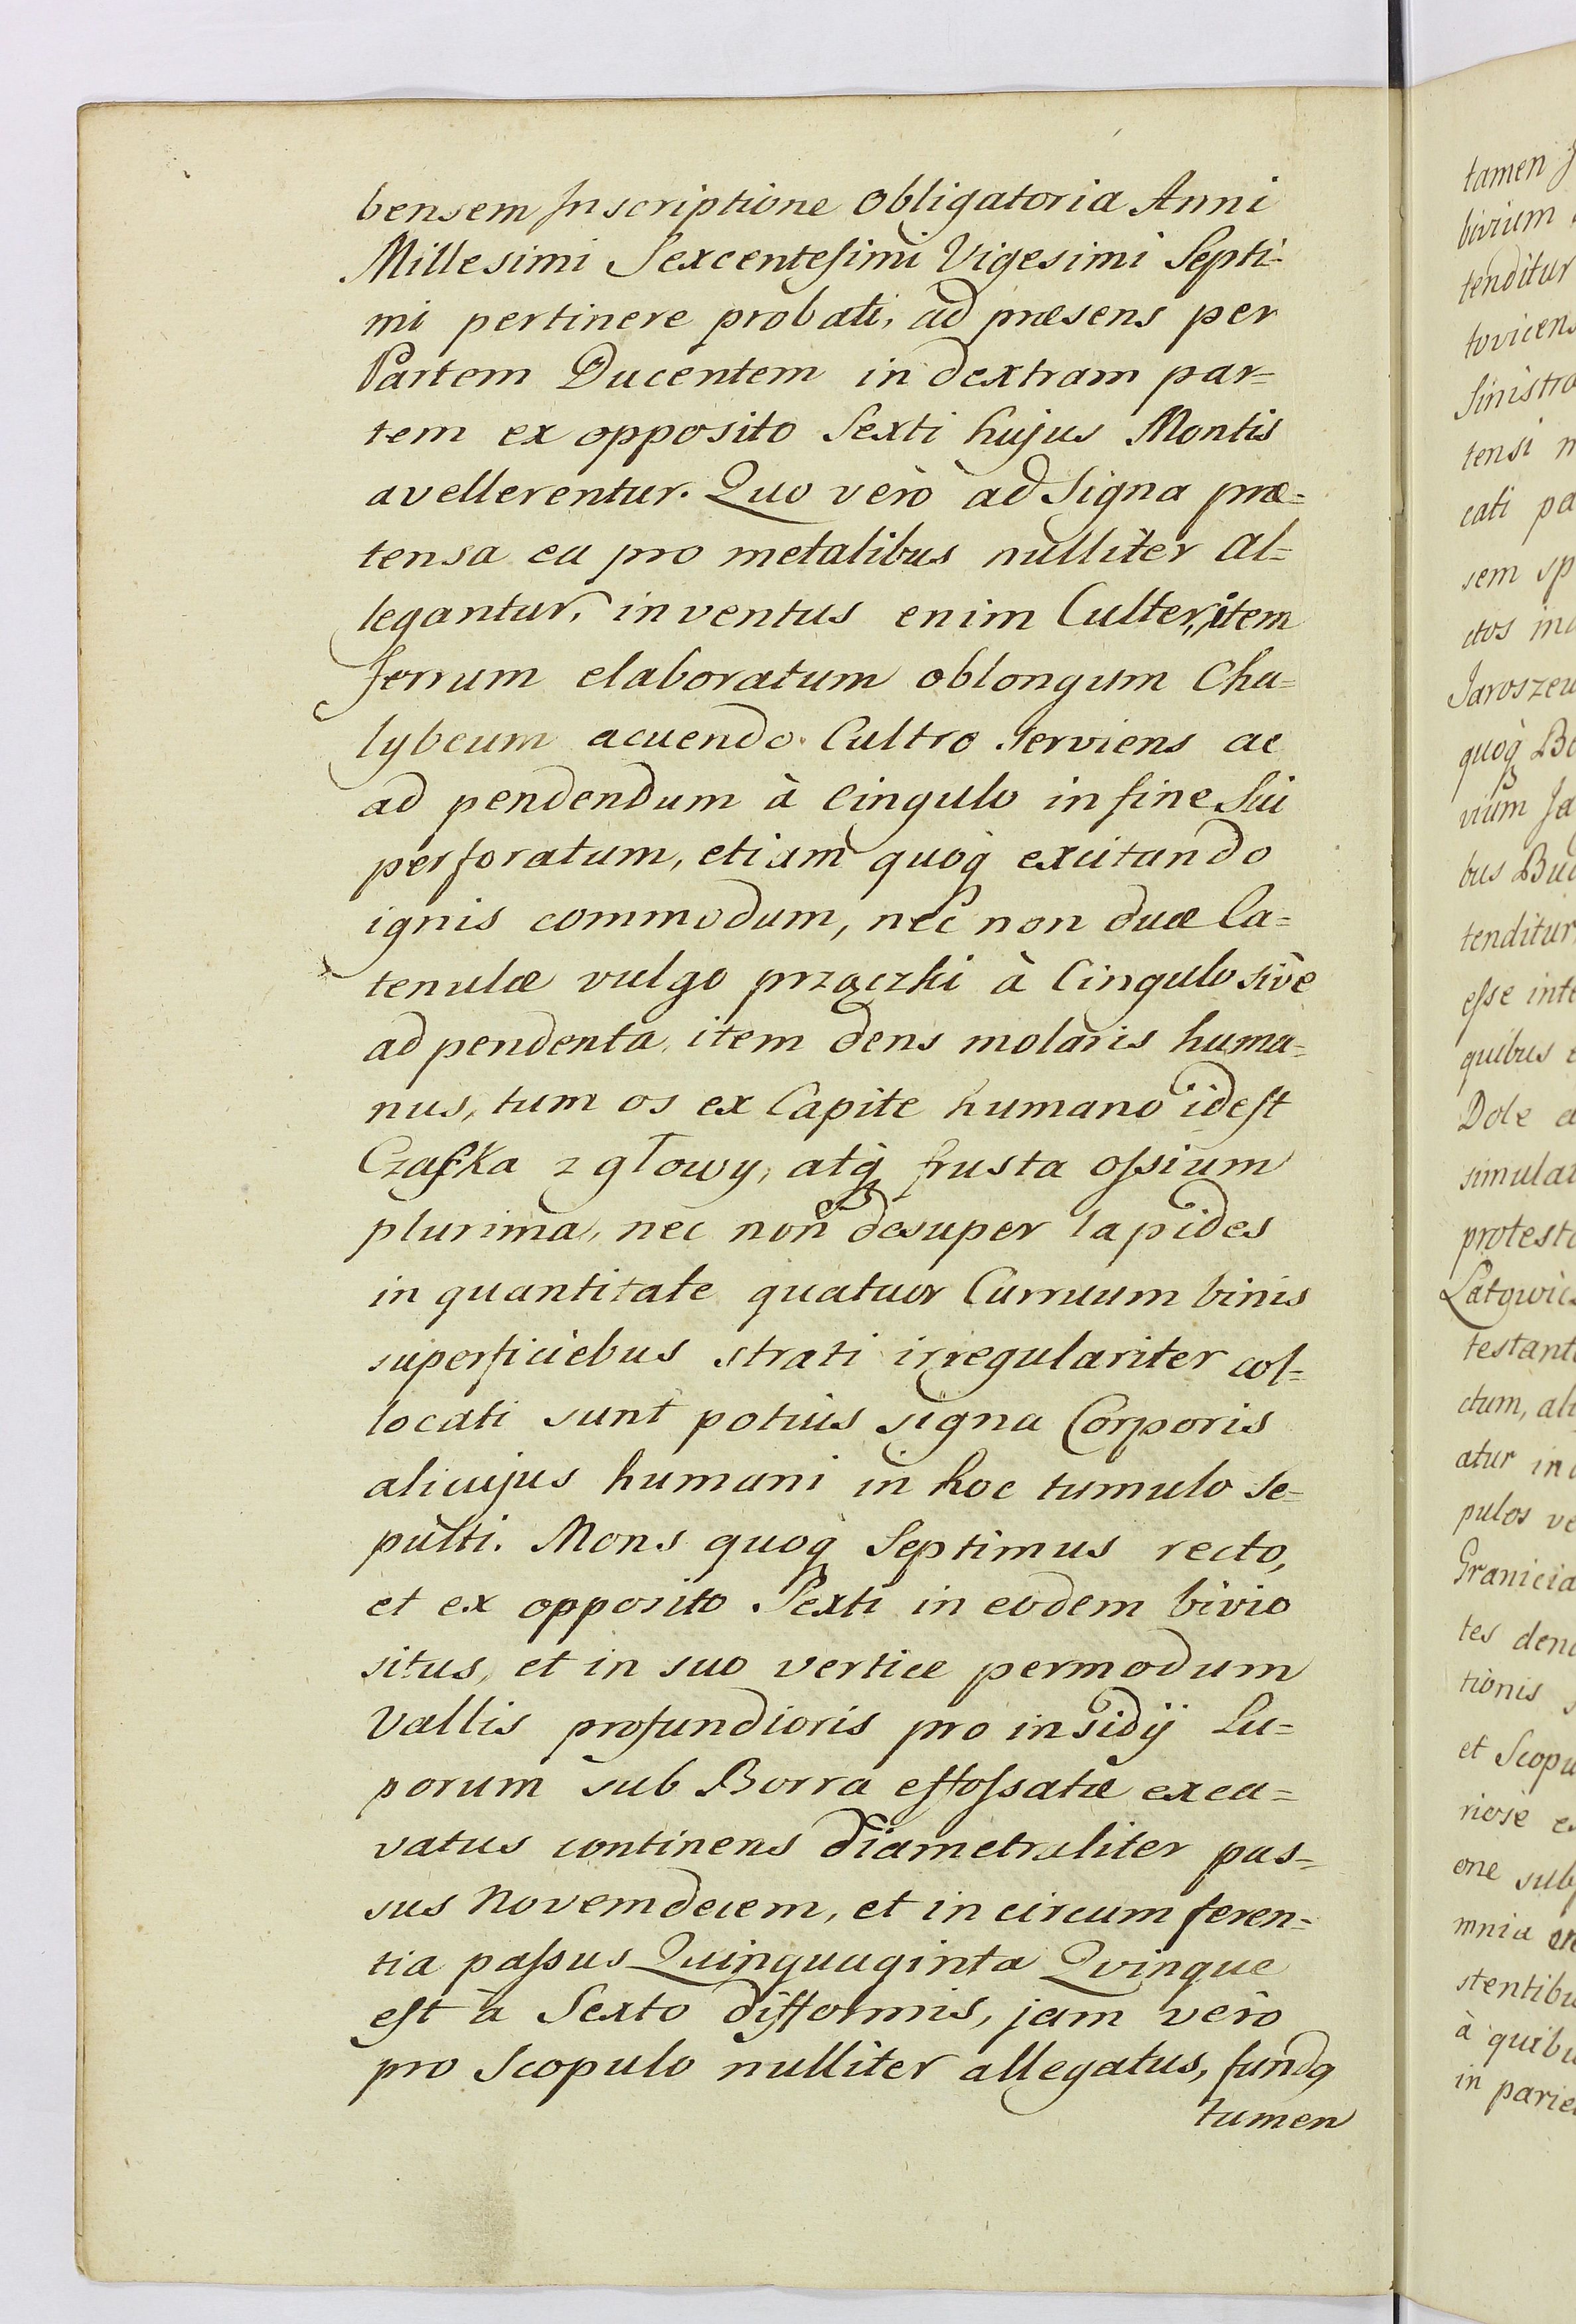 bensem Inscriptione Obligatoria Anni
Millesimi Sexcentesimi Vigesimi Septi-
mi pertinere probati, ad præsens per
Partem Ducentem in dextram par=
tem ex opposito Sexti hujus Montis
avellerentur. Quo verò ad Signa præ=
tensa ea pro metalibus nulliter al=
legantur, inventus enim Culter, item
ferrum elaboratum oblongum Cha=
lybeum acuendo Cultro serviens ac
ad pendendum à Cingulo in fine Sui
perforatum, etiam quoq excitando
ignis commodum, nec non duæ Ca=
tenulæ vulgo przączki à Cingulo sivè
ad pendenta, item dens molaris huma=
nus, tum os ex Capite humano idest
Czaszka z głowy, atq frusta ossium
plurima, nec non desuper lapides
in quantitate quatuor Curruum binis
superficiebus strati irregulariter col=
locati sunt potius signa Corporis
alicujus humani in hoc tumulo se=
pulti. Mons quoq Septimus recto,
et ex opposito Sexti in eodem bivio
situs, et in suo vertice permodum
Vallis profundioris pro insidij Lu=
porum sub Borra effossatæ exca=
vatus continens diametraliter pas=
sus Novemdecem, et in circumferen=
tia passus Quinquaginta Quinque
est à Sexto difformis, jam verò
pro Scopulo nulliter allegatus, fundq
tamen
tamen
bivium
tenditur
tovicens
Sinistra
tensi
cati pa
sem sp
ctos
Jaroszew
quoq
vium
bus
tenditur
esse
quibus
Dole
simulat
protest
testant
ctum,
atur
pulos
tes
tionis
et Scopu
riose
one
mnia
stentibu
à quibu
in parie